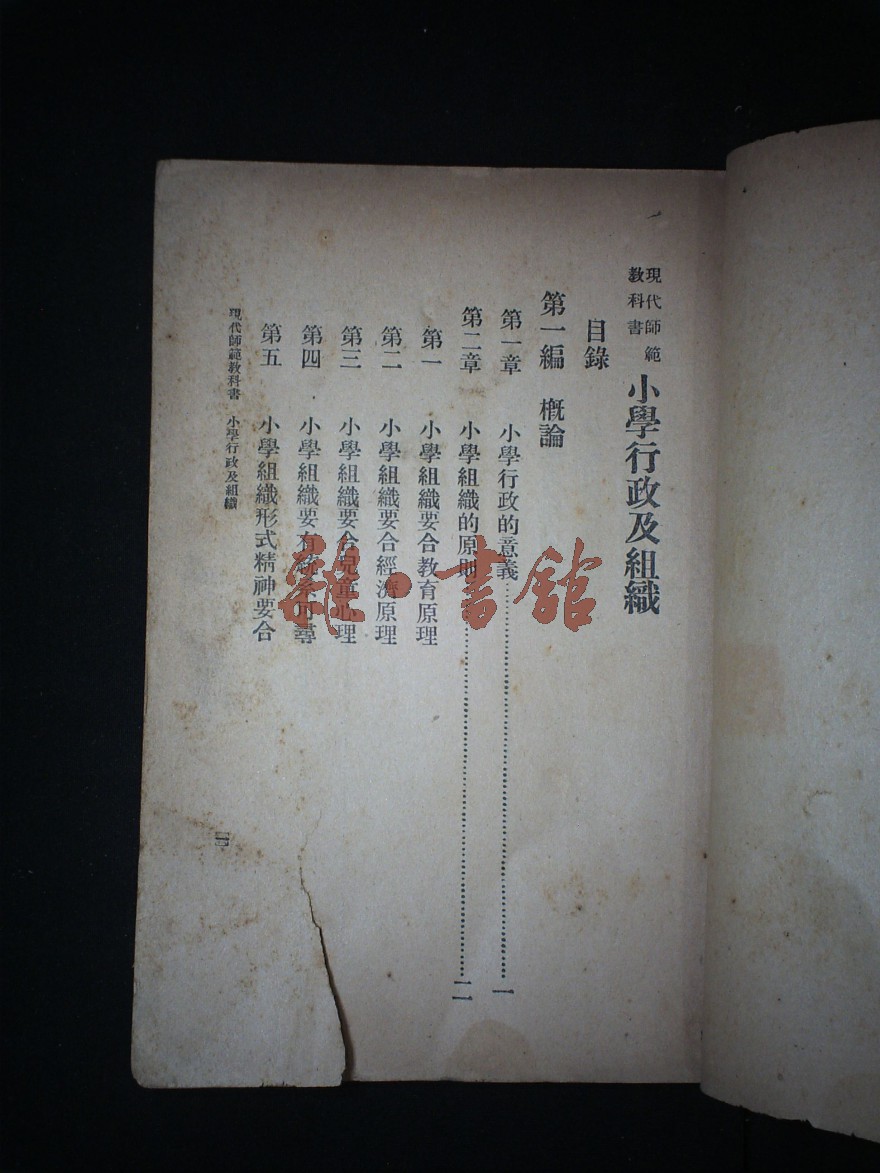 現代師範
教科書
小學行政及組織
目錄
第一編 概論
第一章 小學行政的意義……一
第二章 小學組織的原則……二
第一 小學組織要合教育原理
第二 小學組織要合經濟原理
第三 小學組織要合兒童心理
第四 小學組織要有統系可尋
第五 小學組織形式精神要合
現代師範教科書 小學行政及組織
一
書館